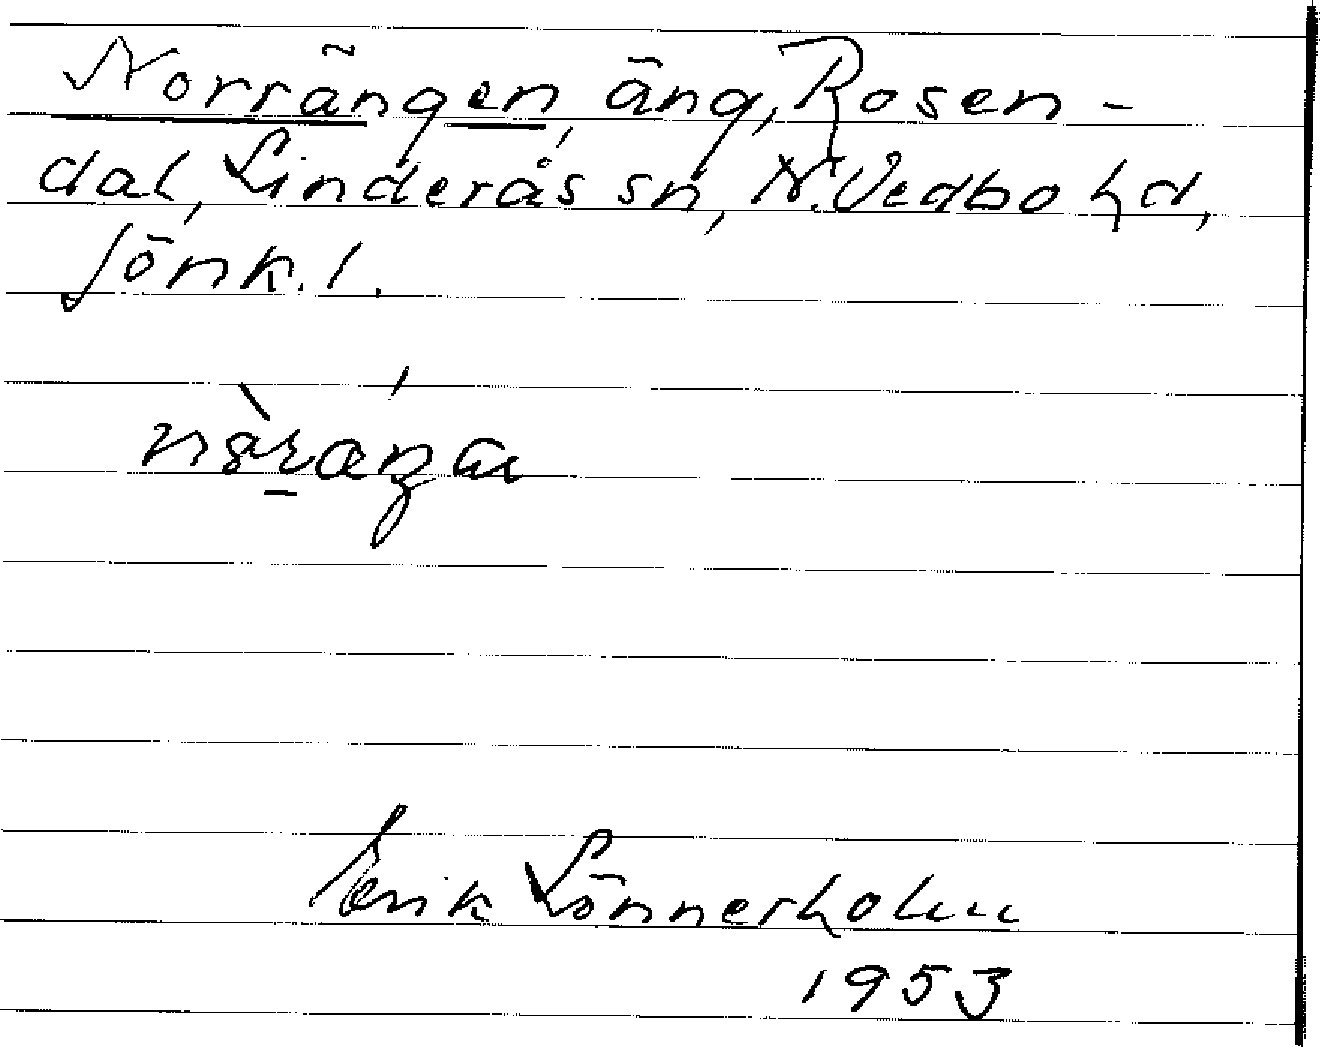 Norrängen, äng, Rosen-
dal, Linderås sn, N. Vedbo hd,
Jönk. l.
Erik Lönnerholm
1953